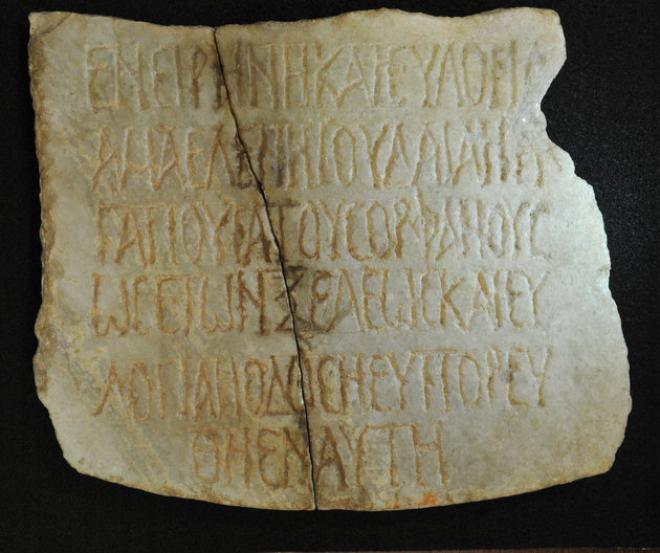 ΕΝΕΙΡΗΝΗΚΑΙΕΥΛΟΓΙΑ
ΑΜΑΕΛΕΝΗΙΟΥΔΑΙΑΗΑ
ΓΑΠΟΥϹΑΤΟΥϹΟΡΦΑΝΟΥϹ
ΩϹΕΤΩΝΞΕΛΕΩϹΚΑΙΕΥ
ΛΟΓΙΑΗΟΔΟϹΗΕΥΠΟΡΕΥ
ΘΗΕΝΑΥΤΗ